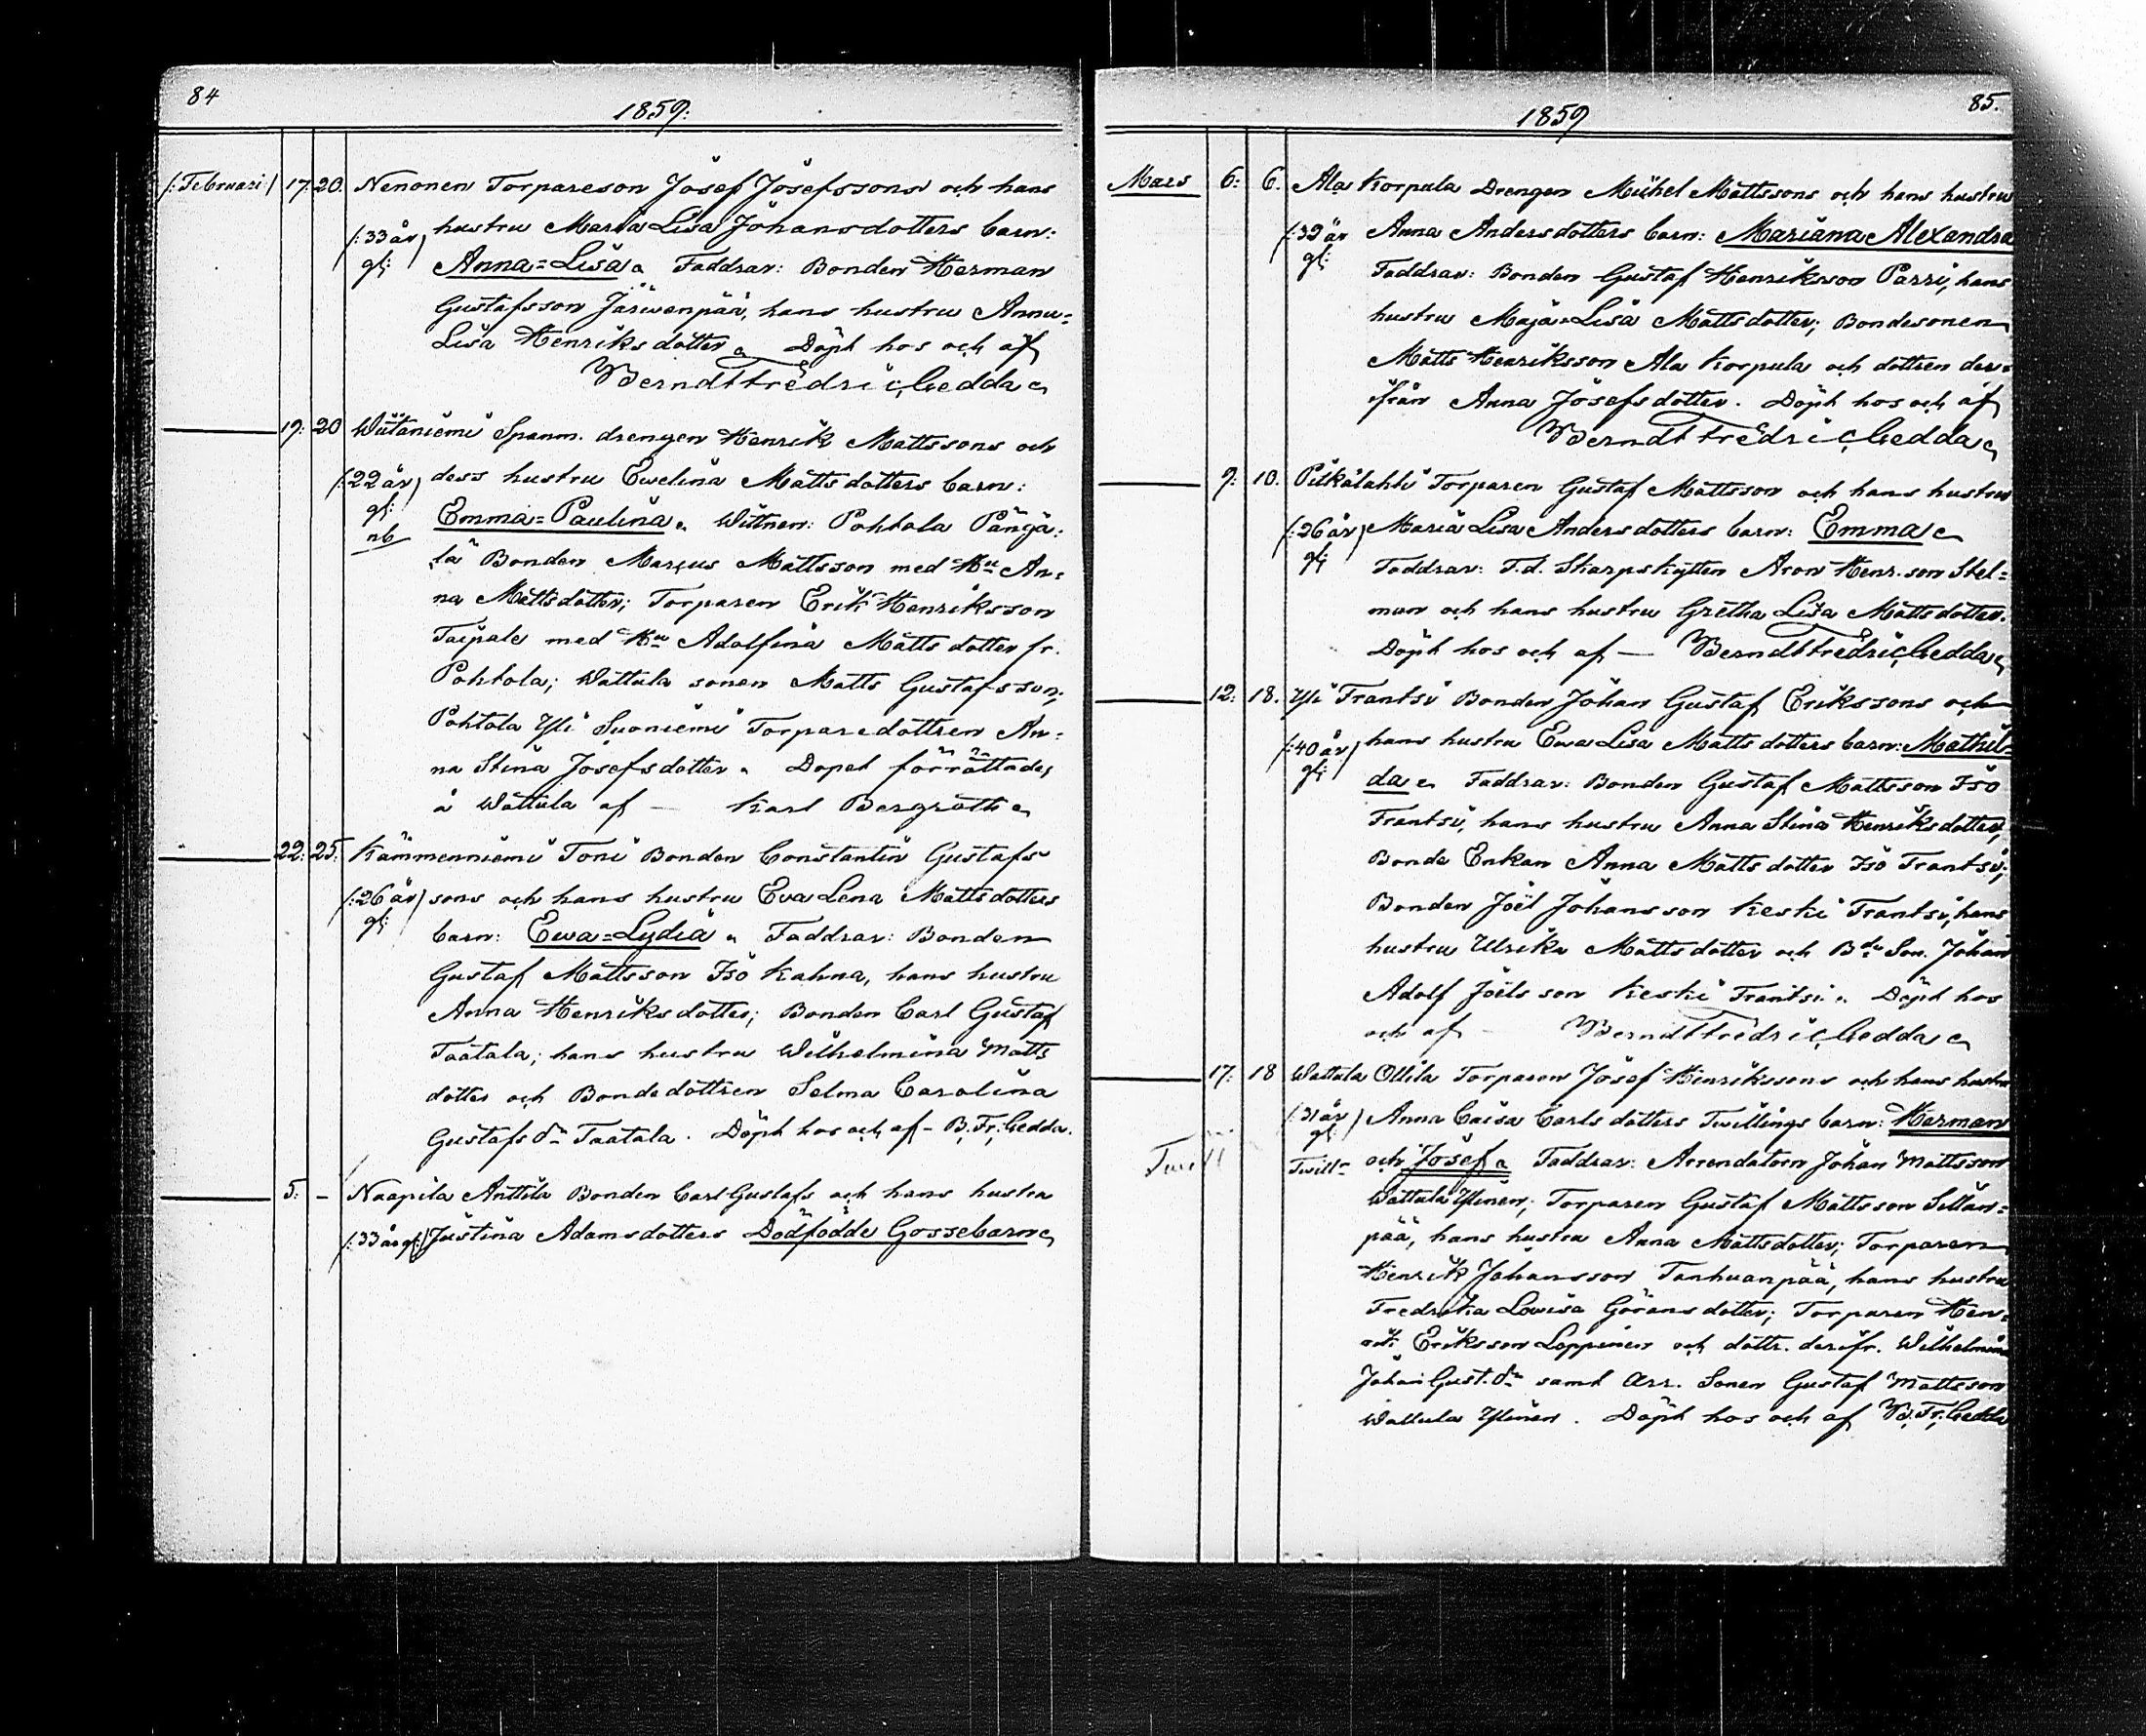 84
1859.
/: Februari :/ 17. 20. Nenonen Torpareson Josef Josefssons och hans
/:33 år hustru Maria Lisa Johansdotters barn:
gl: Anna=Lisa. Faddrar: Bonden Herman
Gustafsson Järwenpää, hans hustru Anna=
Lisa Henriksdotter. Döpt hos och af
Berndt Fredric Gedda
19. 20 Wiitaniemi Spanm. drengen Henrik Mattssons och
/:22 år dess hustru Ewelina Mattsdotters barn:
gl: Emma=Paulina. Wittnen: Pohtola
nb
Bonden Marcus Mattsson med Hu An=
na Mattsdotter; Torparen Erik Henriksson
Taipale med Hu Adolfina Mattsdotter fr.
Pohtola; Wattula sonen Matts Gustafsson;
Pohtola Yli Suoniemi Torparedottren An=
na Stina Josefsdotter. Dopet förrättades
å Wattula af — Karl Bergroth
22. 25. Kämmenniemi Toni Bonden Constantin Gustafs
/:26 år sons och hans hustru Eva Lena Mattsdotters
gl: barn: Ewa=Lydia. Faddrar: Bonden
Gustaf Mattsson Iso Kahma, hans hustru
Anna Henriksdotter; Bonden Carl Gustaf
Taatala; hans hustru Wilhelmina Matts
dotter och Bondedottren Selma Carolina
Gustafs dr Taatala. Döpt hos och af – B. Fr. Gedda.
5. – Naapila Anttila Bonden Carl Gustafs och hans hustru
/:33 år gl: Justina Adamsdotters Dödfödde Gossebarn
1859
85.
Mars 6. 6. Ala Korpula Drengen Michel Mattssons och hans hustru
/:39 år Anna Andersdotters barn: Mariana Alexandra
gl: Faddrar: Bonden Gustaf Henriksson Parri, hans
hustru Maja=Lisa Mattsdotter; Bondesonen
Matts Henriksson Ala Korpula och dottren der=
ifrån Anna Josefsdotter. Döpt hos och af
Berndt Fredric Gedda
9. 10. Pitkälahti Torparen Gustaf Mattsson och hans hustru
/:26 år Maria Lisa Andersdotters barn: Emma
gl: Faddrar: F.d. Skarpskytten Aron Henr.son Stel=
man och hans hustru Gretha Lisa Mattsdotter.
Döpt hos och af — Berndt Fredric Gedda
12. 18. Yli Frantsi Bonden Johan Gustaf Erikssons och
/:40 år hans hustru Ewa Lisa Mattsdotters barn: Mathil=
gl: da. Faddrar: Bonden Gustaf Mattsson Iso
Frantsi, hans hustru Anna Stina Henriksdotter,
Bonde Enkan Anna Mattsdotter Iso Frantsi;
Bonden Joël Johansson Keski Frantsi, hans
hustru Ulrika Mattsdotter och Bde Son. Johan
Adolf Joëls son Keski Frantsi. Döpt hos
och af – Berndt Fredric Gedda
17. 18 Wattula Ollila Torparen Josef Henrikssons och hans hustru
/:31 år Anna Caisa Carlsdotters Twillings barn: Herman
gl:
Twill Twillr och Josef. Faddrar: Arrendatorn Johan Mattsson
Wattula Ylinen; Torparen Gustaf Mattsson Sillan=
pää, hans hustru Anna Mattsdotter; Torparen
Henrik Johansson Tanhuanpää, hans hustru
Fredrika Lowisa Göransdotter; Torparen Hen=
rik Eriksson Leppinen och dottr. derifr. Wilhelmina
Johan Gust. dr samt Arr. Sonen Gustaf Mattsson
Wattula Ylinen. Döpt hos och af B. Fr. Gedda